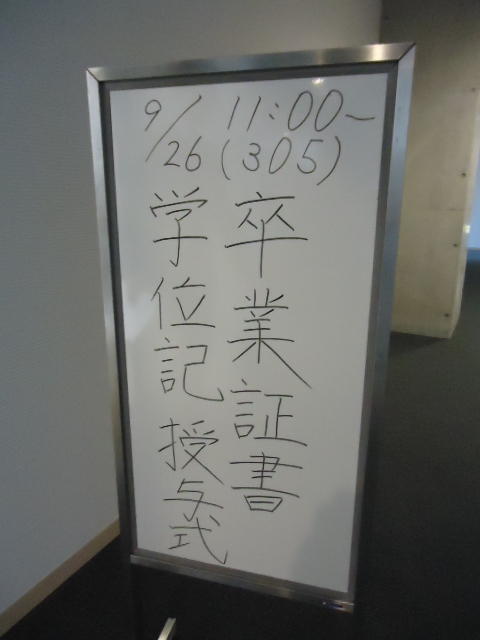 9/26 11:00~
(305)
卒業証書
学位記授与式